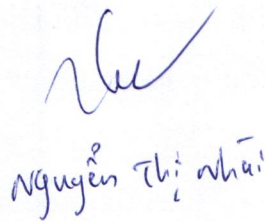 Nguyễn Thị Nhài